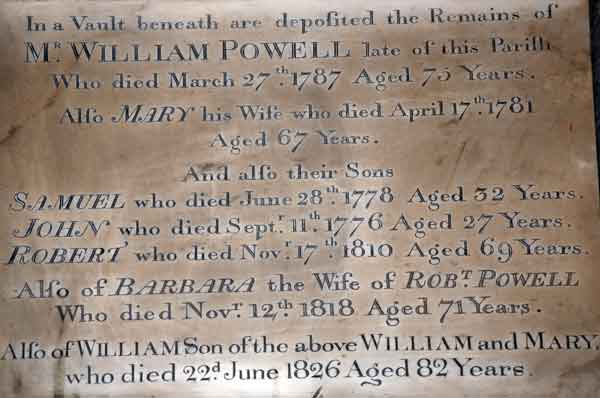 In a Vault beneath are depoſited the Remains of
Mʳ. WILLIAM POWELL late of this Pariſh
Who died March 27ᵗʰ. 1787 Aged 75 Years.
Alſo MARY his Wife who died April 17ᵗʰ. 1781
Aged 67 Years.
And alſo their Sons
SAMUEL who died June 28ᵗʰ. 1778 Aged 32 Years.
JOHN who died Septʳ. 11ᵗʰ. 1776 Aged 27 Years.
ROBERT who died Novʳ. 17ᵗʰ. 1810 Aged 69 Years.
Alſo of BARBARA the Wife of ROBᵀ. POWELL
Who died Novʳ. 12ᵗʰ. 1818 Aged 71 Years.
Alſo of WILLIAM Son of the above WILLIAM and MARY,
who died 22ᵈ. June 1826 Aged 82 Years.